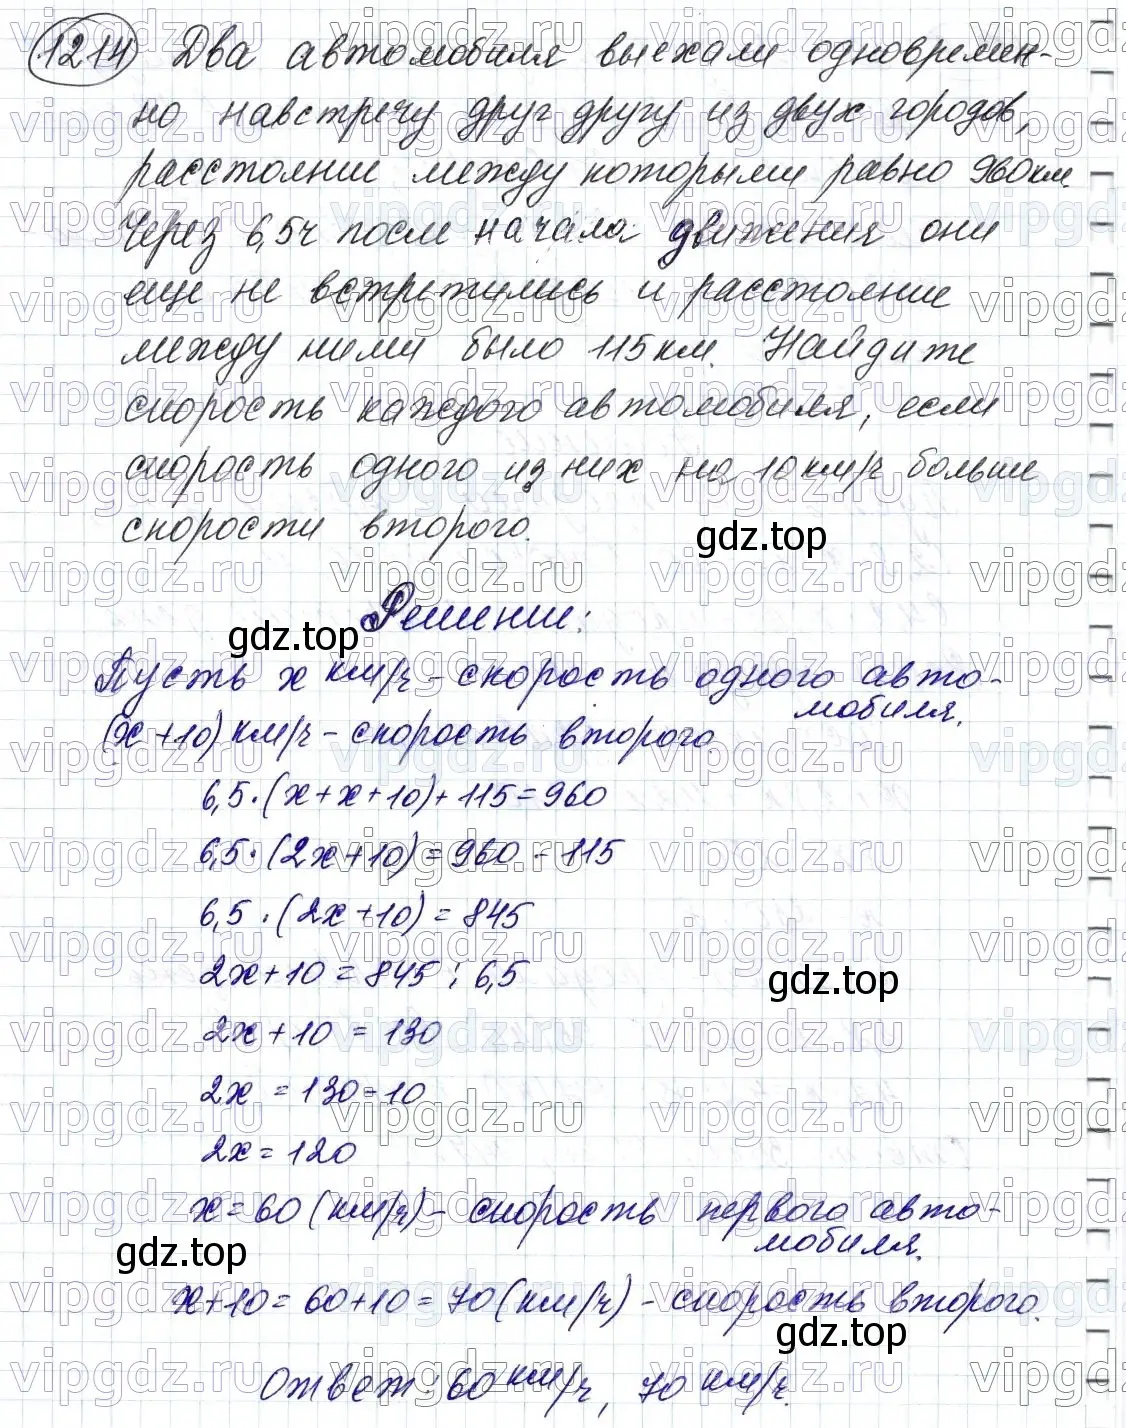 1214 Два автомобиля выехали одновремен-
но навстречу друг другу из двух городов,
расстояние между которыми равно 960 км.
Через 6,5 ч после начала движения они
еще не встретились и расстояние
между ними было 115 км. Найдите
скорость каждого автомобиля, если
скорость одного из них на 10 км/ч больше
скорости второго.
gdz.top
Решение:
gdz.top
Пусть x км/ч - скорость одного авто-
мобиля.
(x+10) км/ч - скорость второго
6,5·(x+x+10)+115=960
6,5·(2x+10)=960-115
6,5·(2x+10)=845
2x+10=845:6,5
gdz.top
2x+10=130
2x=130-10
2x=120
x=60 (км/ч) - скорость первого авто-
мобиля.
gdz.top
x+10=60+10=70 (км/ч) - скорость второго.
gdz.top
Ответ: 60 км/ч, 70 км/ч.
vipgdz.ru